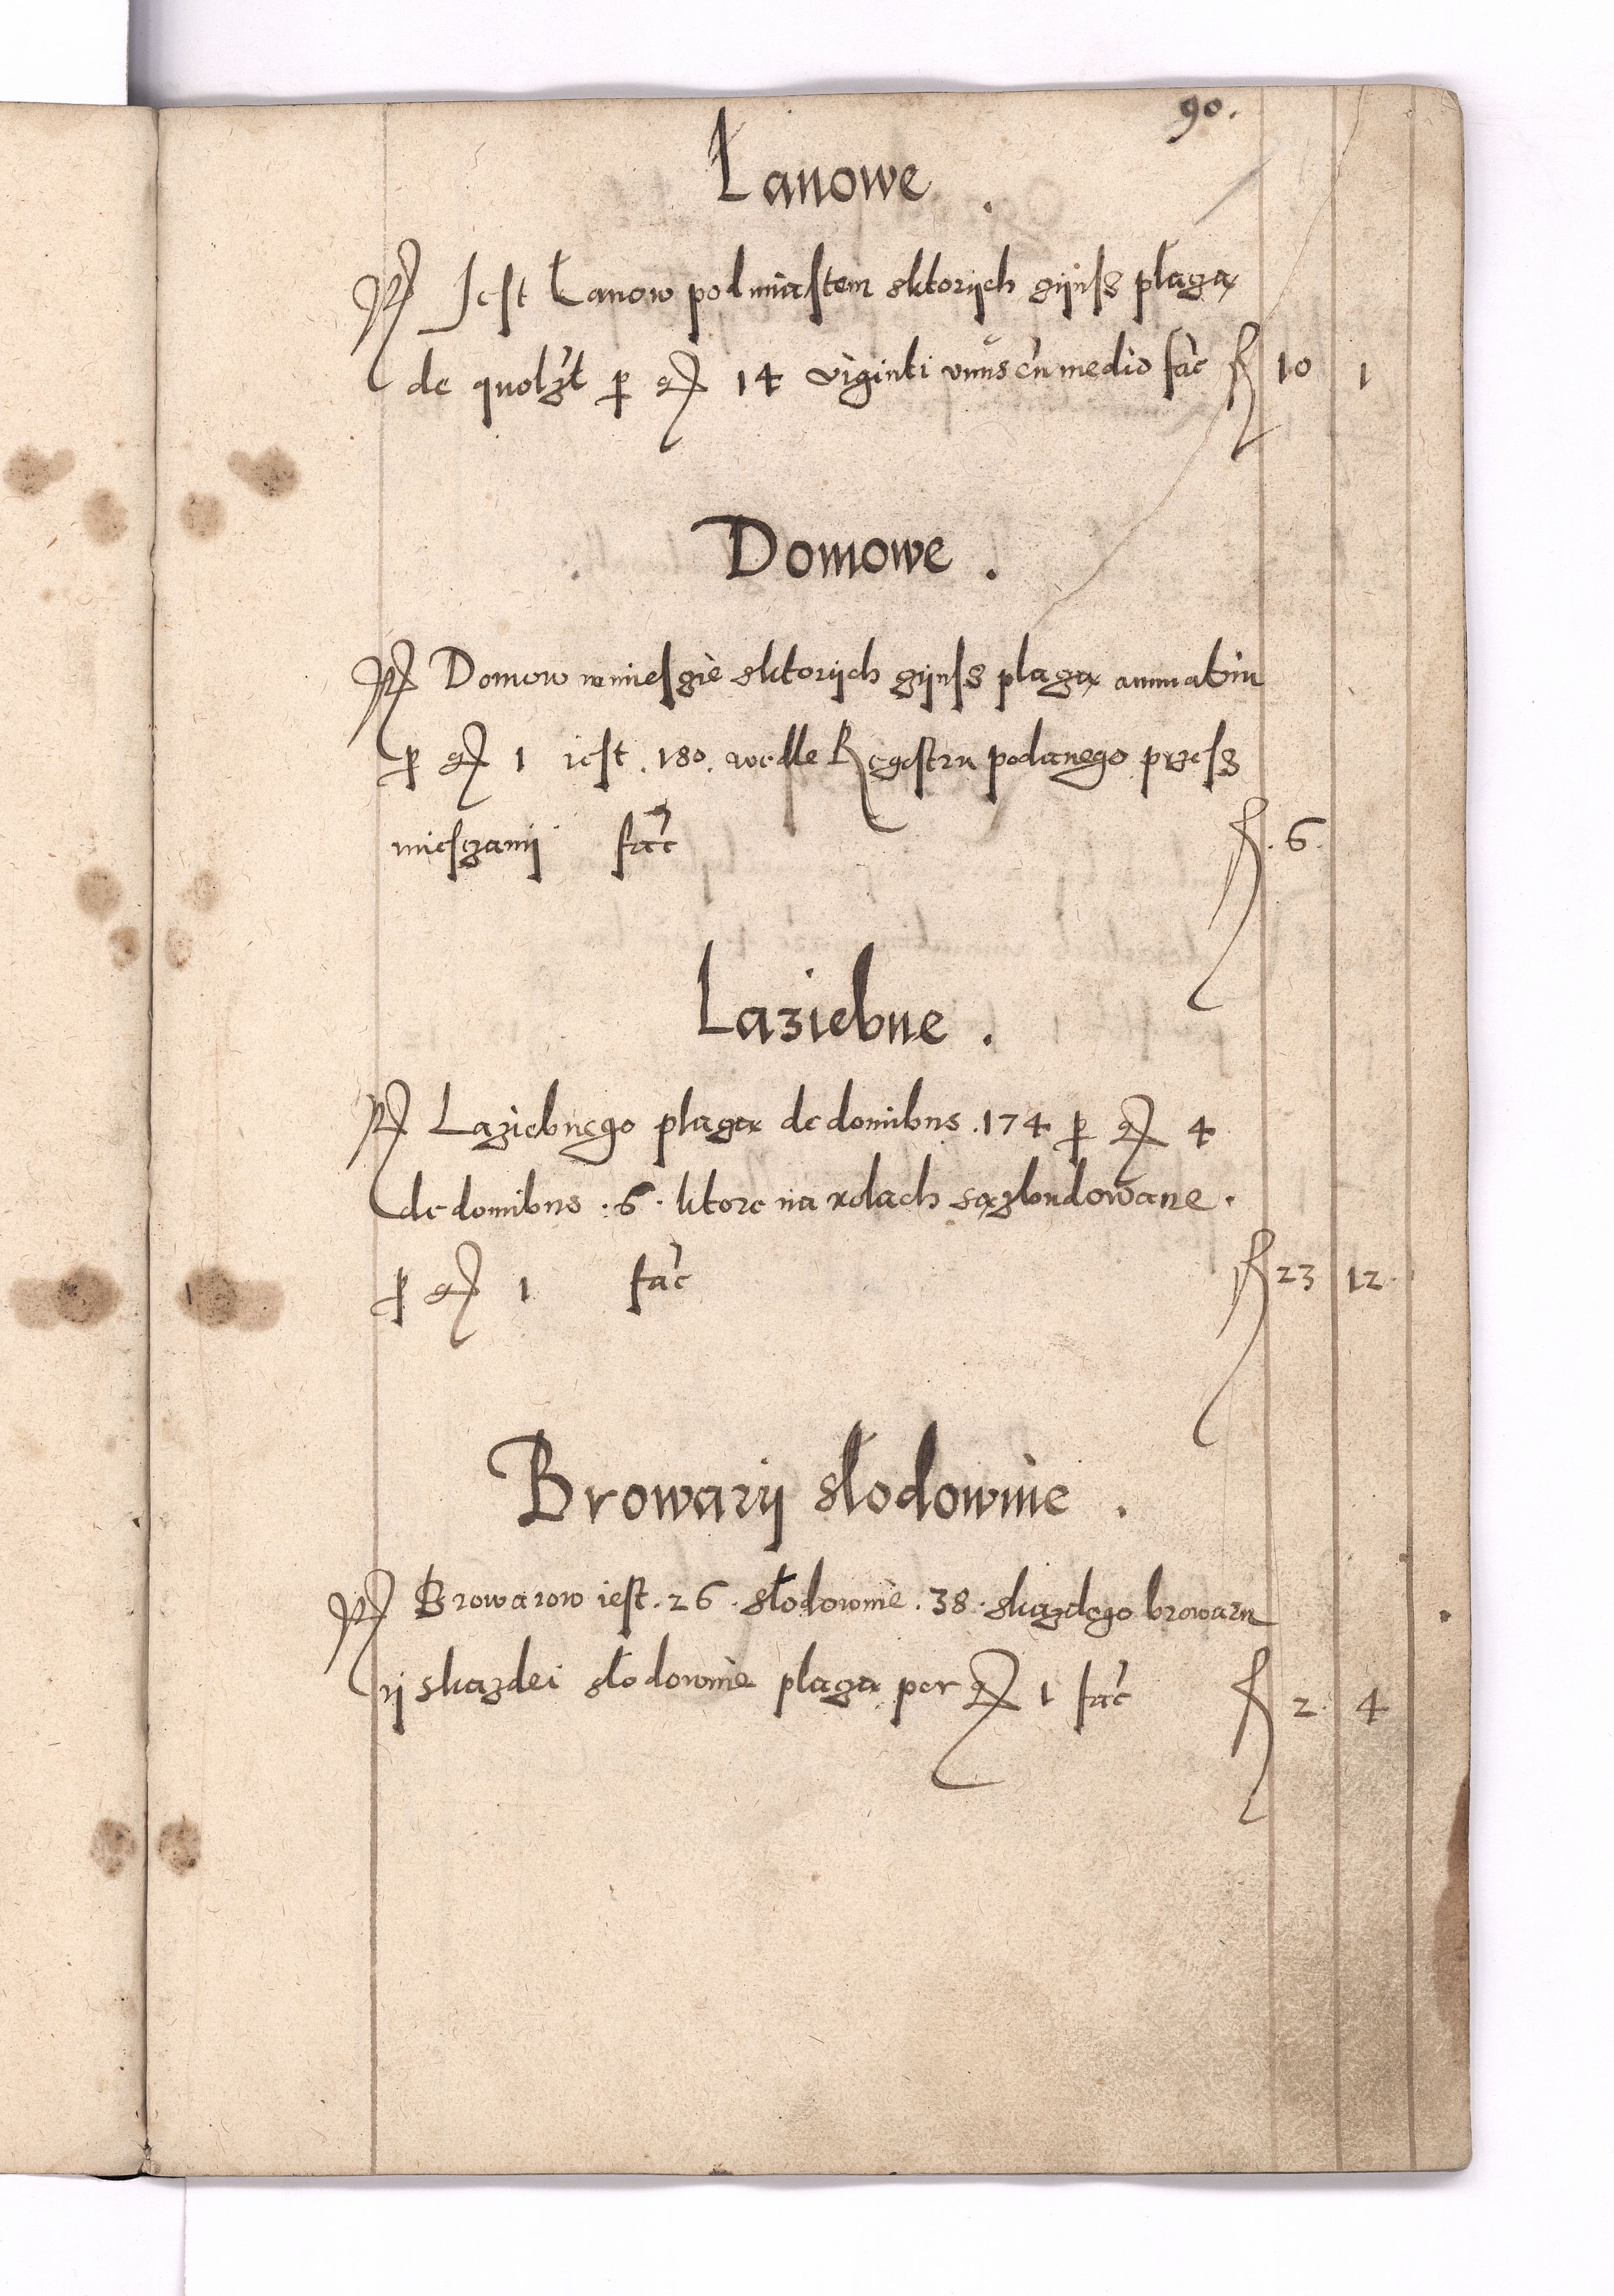 90.
Łanowe .
Jest Łanow pod miastem sktorijch czijnsz placzą
de quolzt p gr 14 viginti vnus cu medio fac fl 10 1
Domowe .
Domow wmiesczie sktorijch czijnsz placzą annuatim
p gr 1 iest . 180 . wedle Regestru podanego przesz
miesczanij fac fl . 6 .
Laziebne .
Laziebnego placzą de domibus . 174 p gr 4
de domibus . 6 . ktore na rolach są zbudowane .
p gr 1 fac fl 23 12
Browarij słodownie .
Browarow iest . 26 . słodownie . 38 . skazdego browaru
ij skazdei słodownie placzą per gr 1 fac fl 2 4